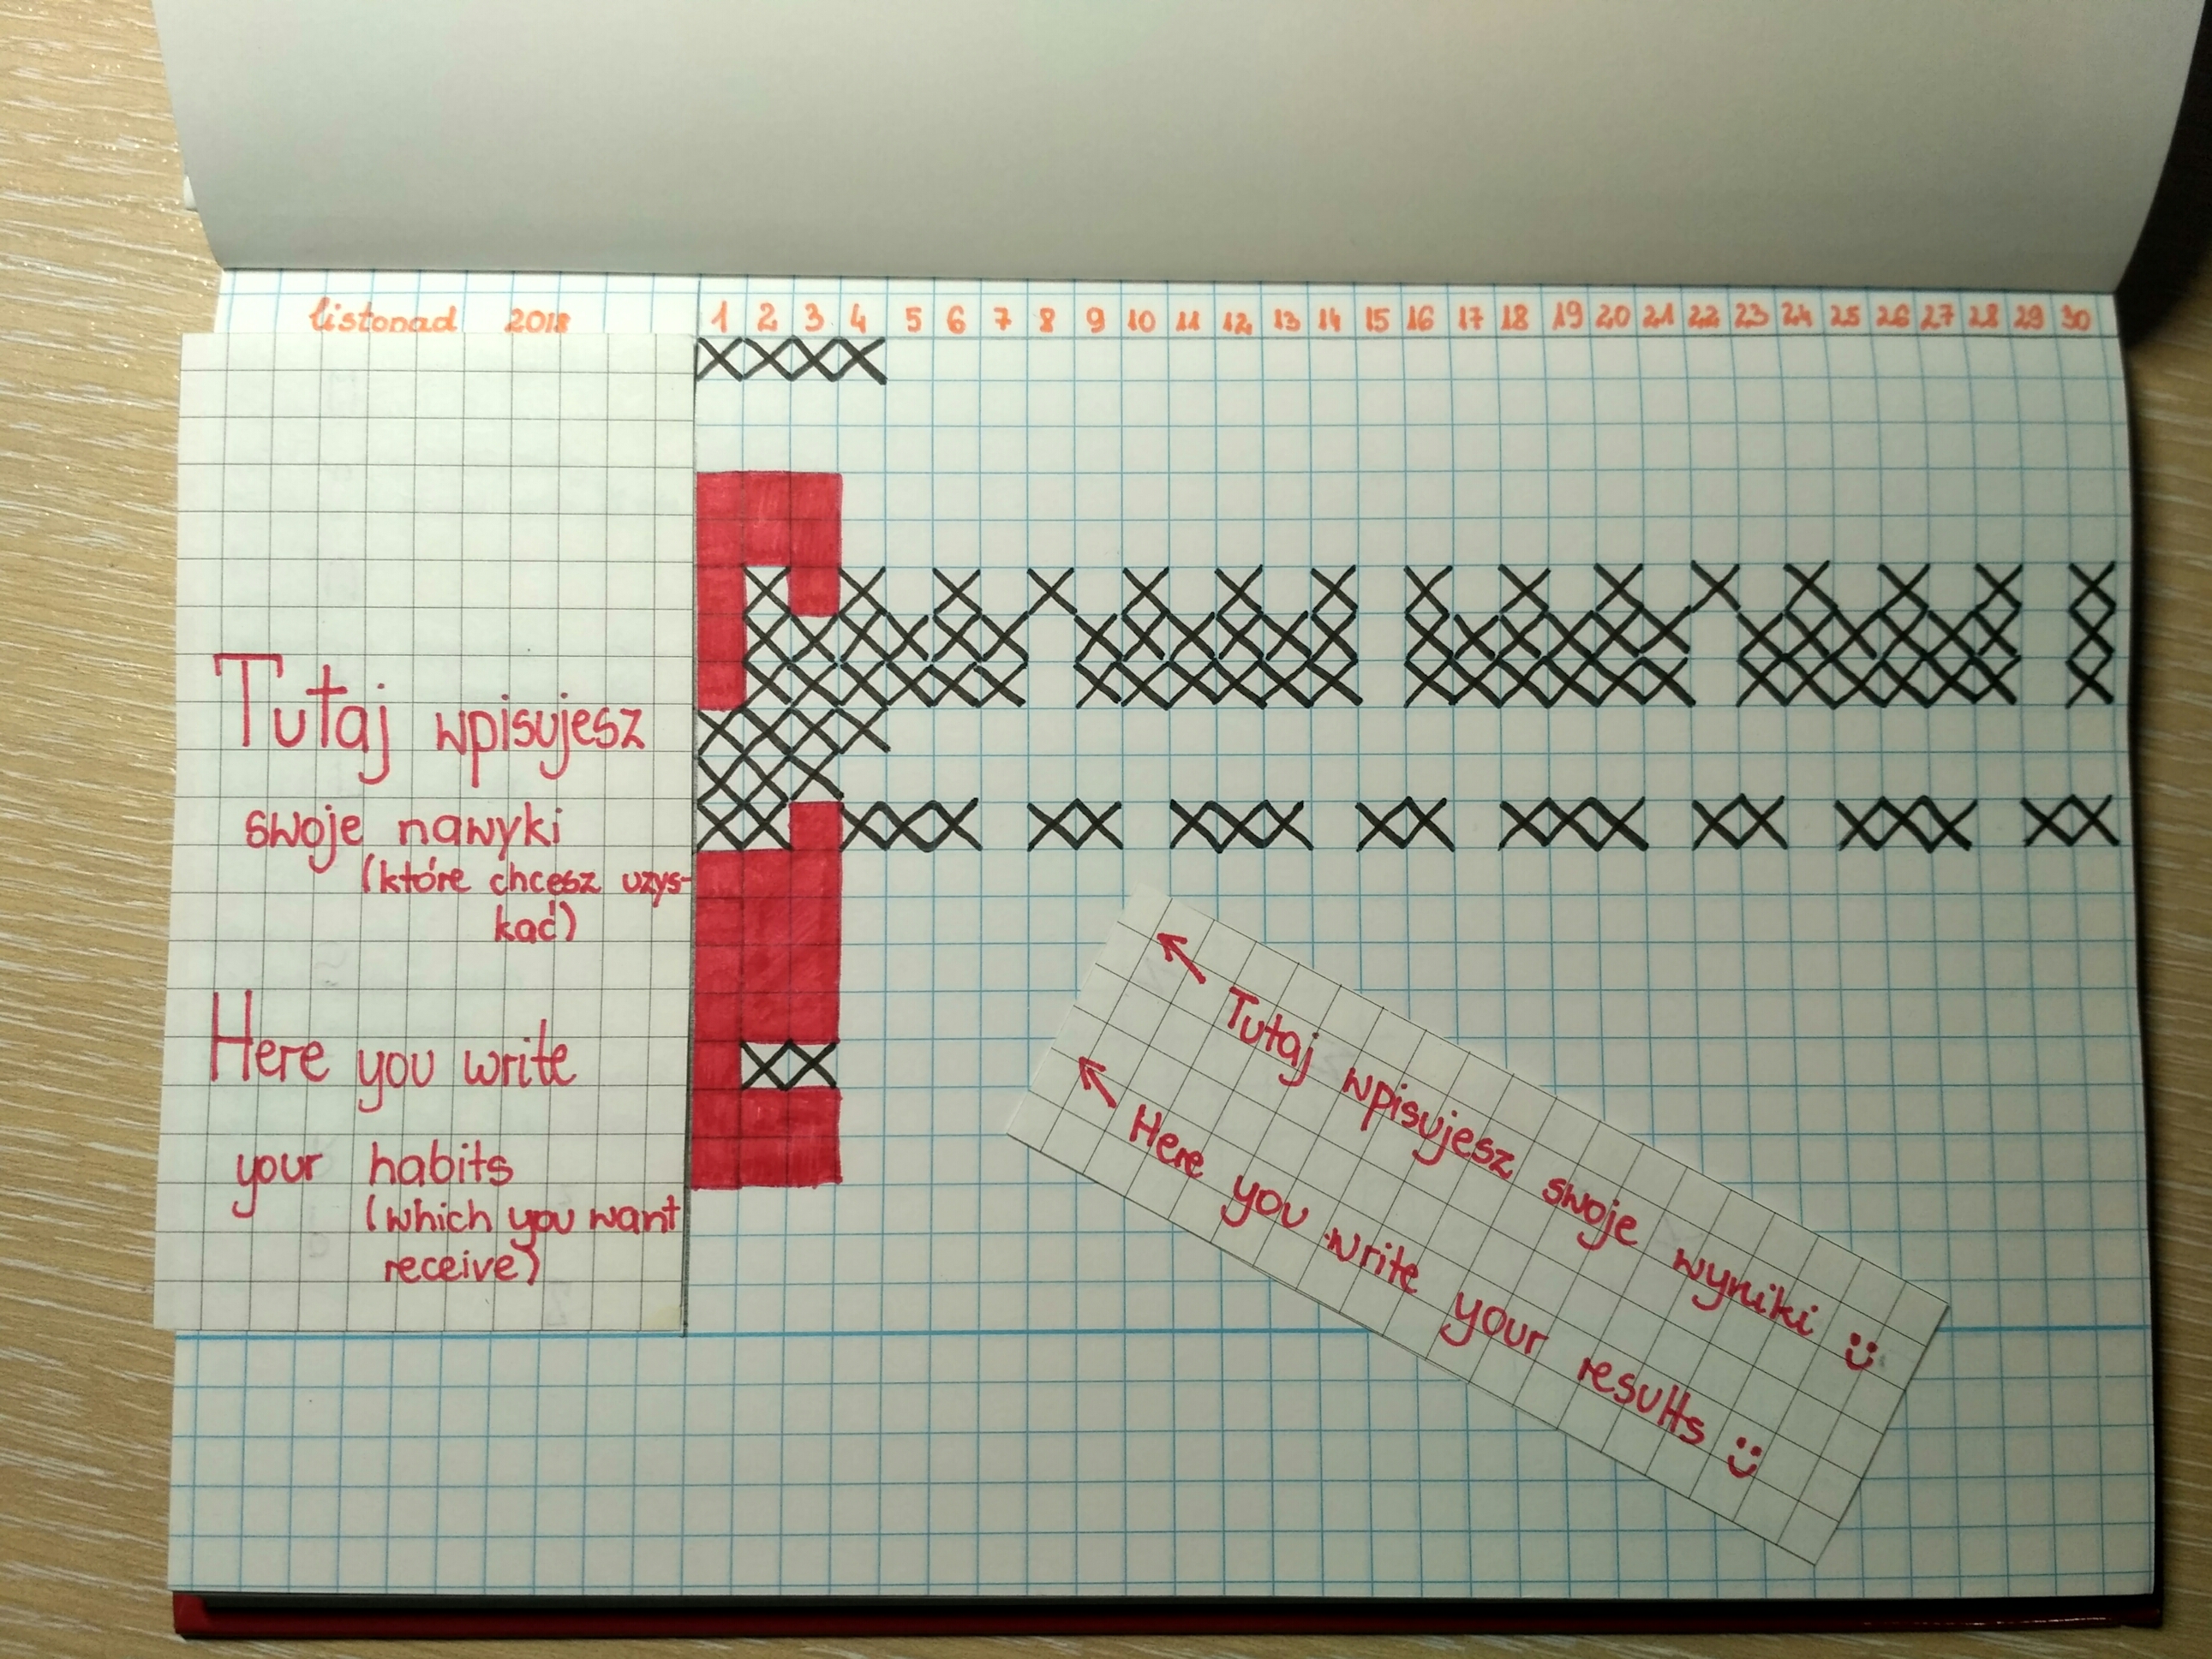 listopad 2018 1 2 3 4 5 6 7 8 9 10 11 12 13 14 15 16 17 18 19 20 21 22 23 24 25 26 27 28 29 30
Tutaj wpisujesz
swoje nawyki
(które chcesz uzys-
kać)
Here you write
your habits
(which you want
receive)
Tutaj wpisujesz swoje wyniki
Here you write your results